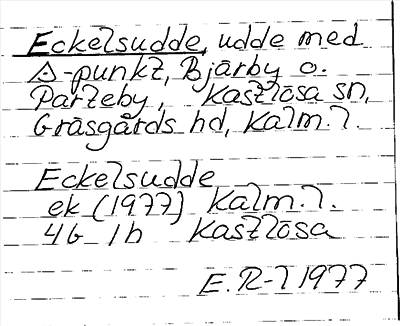 Eckelsudde, udde med
△-punkt, Bjärby o.
Parteby, Kastlösa sn,
Gräsgårds hd, Kalm. l.
Eckelsudde
ek (1977) Kalm. l.
4G 1h Kastlösa
E. R-l 1977